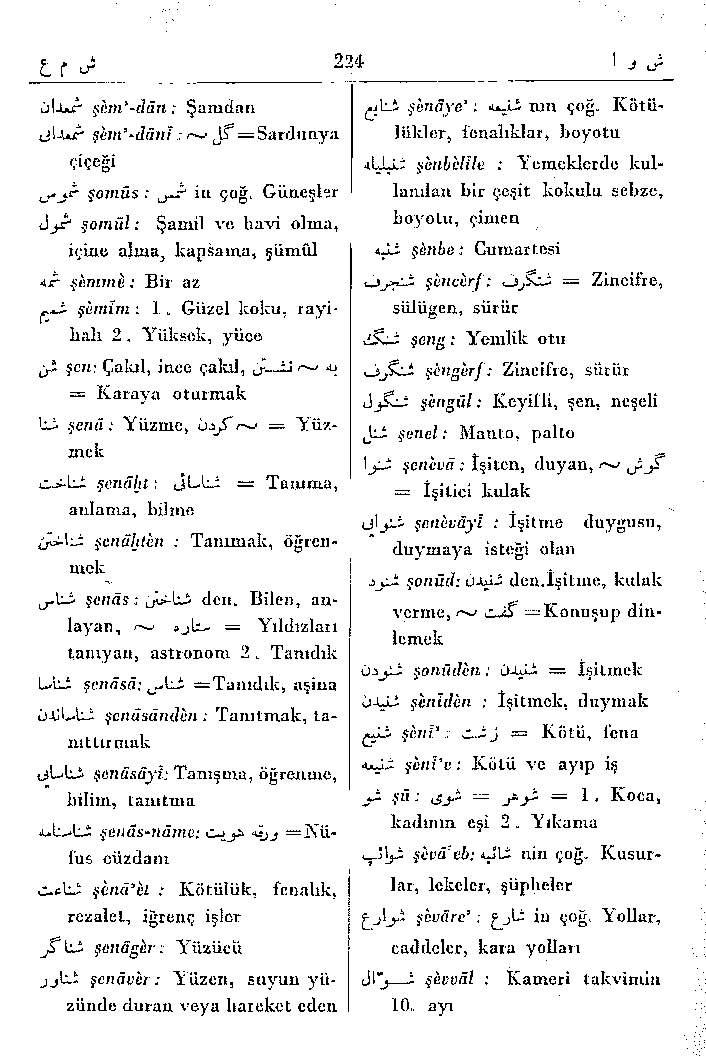 ش م ع 224 ش و ا
شمعدان şèm'-dân : Şamdan
شمعدانی şèm'-dânî : ~ گل = Sardunya
çiçeği
شموس şomûs : شمس in çoğ. Güneşler
شمول şomûl : Şamil ve havi olma,
içine alma, kapsama, şümûl
شمه şèmmè : Bir az
شمیم şèmîm : 1. Güzel koku, rayi-
halı 2. Yüksek, yüce
شن şen: Çakıl, ince çakıl, به ~ نشستن
= Karaya oturmak
شنا şenâ : Yüzme, ~ کردن = Yüz-
mek
شناخت şenâḫt : شناسائی = Tanıma,
anlama, bilme
شناختن şenâḫtèn : Tanımak, öğren-
mek
شناس şenâs : شناختن den. Bilen, an-
layan, ~ ستاره = Yıldızları
tanıyan, astronom 2. Tanıdık
شناسا şenâsâ: شناس =Tanıdık, aşina
شناساندن şenâsândèn : Tanıtmak, ta-
nıttırmak
شناسایی şenâsâyî: Tanışma, öğrenme,
bilim, tanıtma
شناسنامه şenâs-nâme: ورقه هویت =Nü-
fus cüzdanı
شناعت şènâ'èt : Kötülük, fenalık,
rezalet, iğrenç işler
شناگر şenâgèr : Yüzücü
شناور şenâvèr : Yüzen, suyun yü-
zünde duran veya hareket eden
شنایع şènâye' : شنیعه nın çoğ. Kötü-
lükler, fenalıklar, boyotu
شنبلیله şènbèlîle : Yemeklerde kul-
lanılan bir çeşit kokulu sebze,
boyotu, çimen
شنبه şènbe : Cumartesi
شنجرف şèncèrf : شنگرف = Zincifre,
sülügen, sürür
شنگ şeng : Yemlik otu
شنگرف şèngèrf : Zincifre, sürür
شنگول şèngûl : Keyifli, şen, neşeli
شنل şenel : Manto, palto
شنوا şenèvâ : İşiten, duyan, ~ گوش
= İşitici kulak
شنوایی şenèvâyî : İşitme duygusu,
duymaya isteği olan
شنود şonûd: شنیدن den.İşitme, kulak
verme, ~ گفت =Konuşup din-
lemek
شنودن şonûdèn : شنیدن = İşitmek
شنیدن şènîdèn : İşitmek, duymak
شنیع şènî' : زشت = Kötü, fena
شنیعه şènî'e : Kötü ve ayıp iş
شو şû : شوی = شوهر = 1. Koca,
kadının eşi 2. Yıkama
شوائب şèvâ'eb: شائبه nin çoğ. Kusur-
lar, lekeler, şüpheler
شوارع şèvâre' : شارع in çoğ. Yollar,
caddeler, kara yolları
شوّال şèvvâl : Kameri takvimin
10. ayı